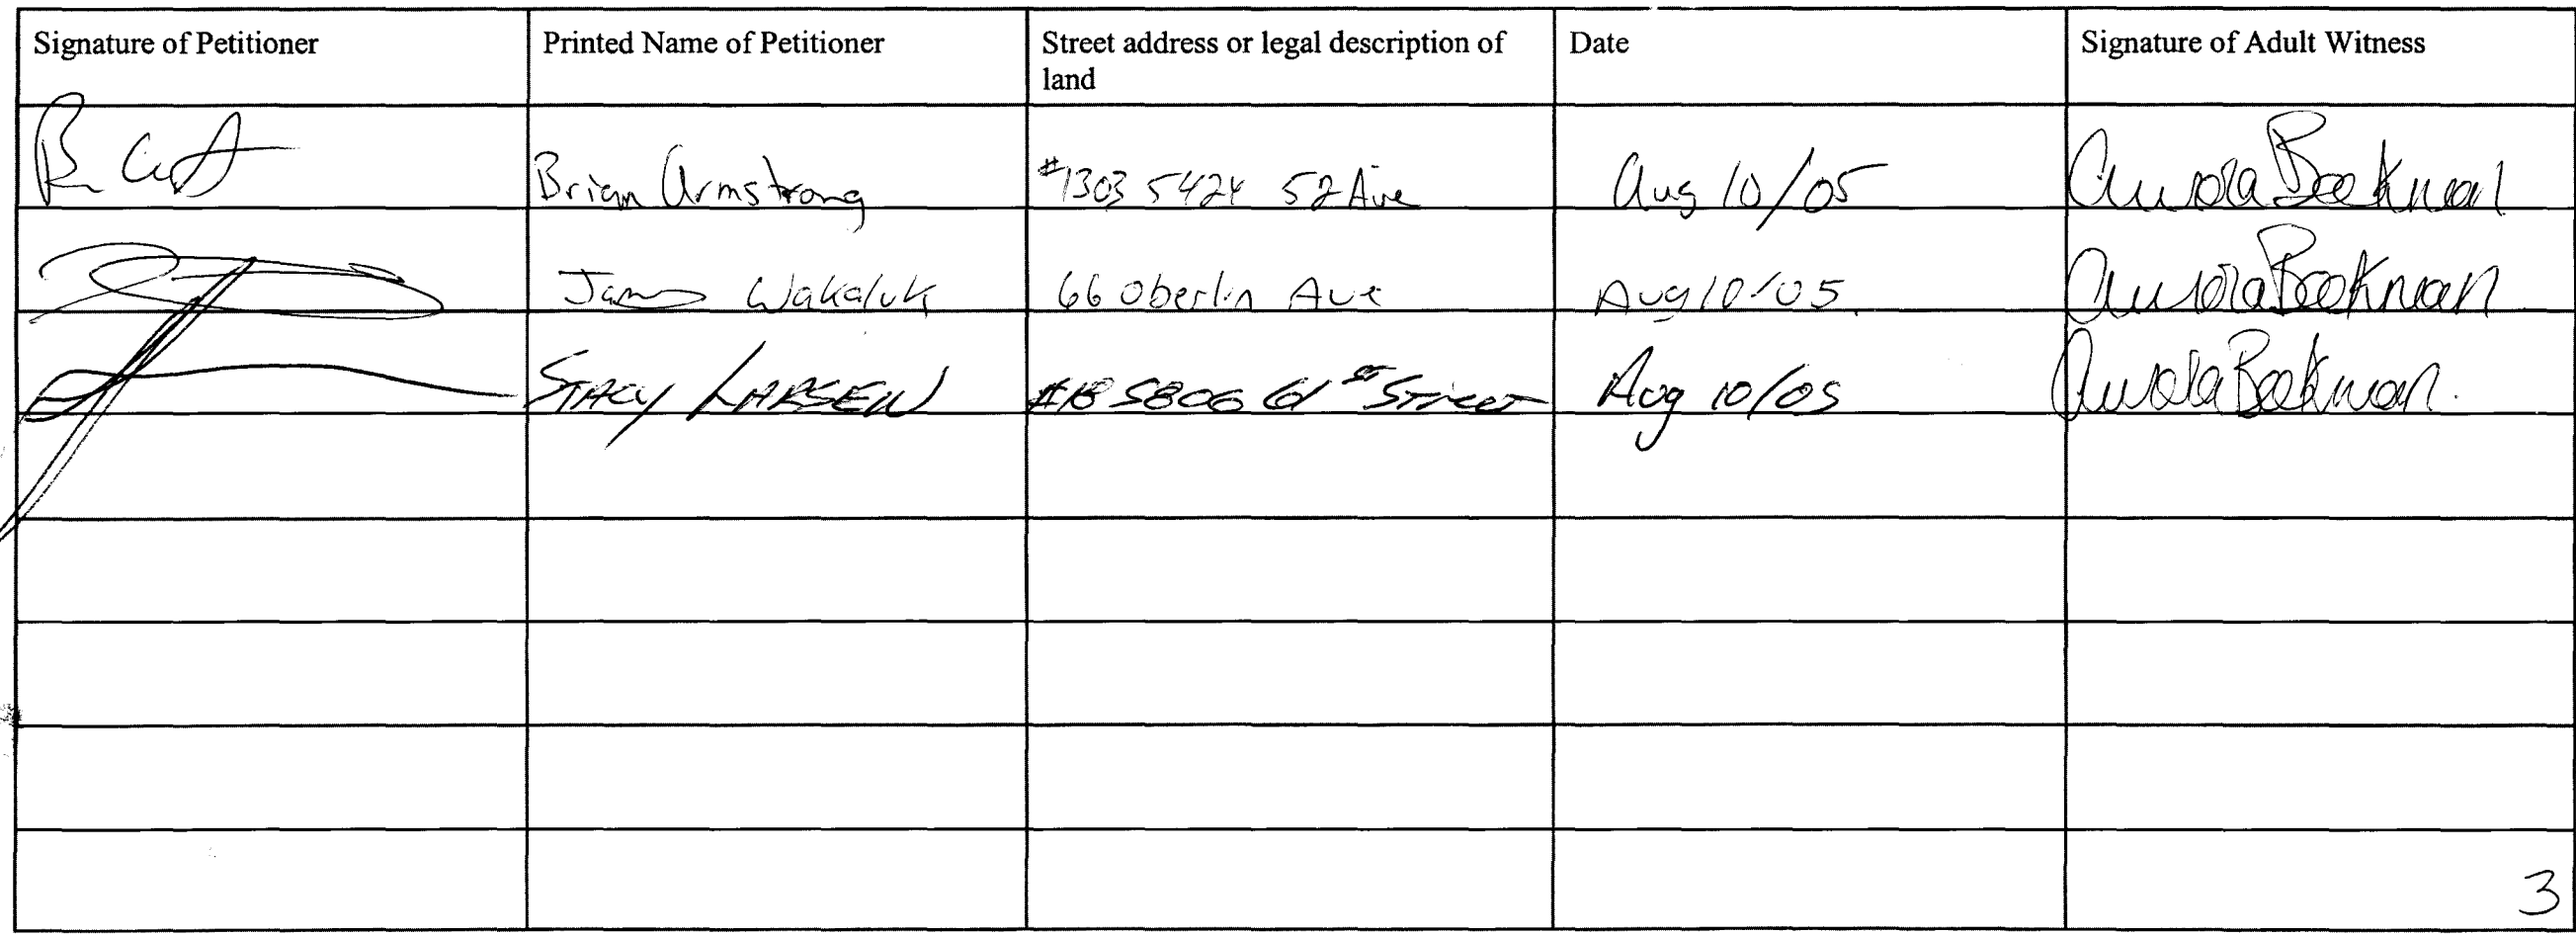 Signature of Petitioner
Printed Name of Petitioner
Street address or legal description of
land
Date
Signature of Adult Witness
Brian Armstrong
#1303 5424 52 Ave
Aug 10/05
Beekman
James Wakaluk
66 Oberlin Ave
Aug 10/05
Beekman
STACY LARSEN
#18 5806 61st Street
Aug 10/05
Beekman
3